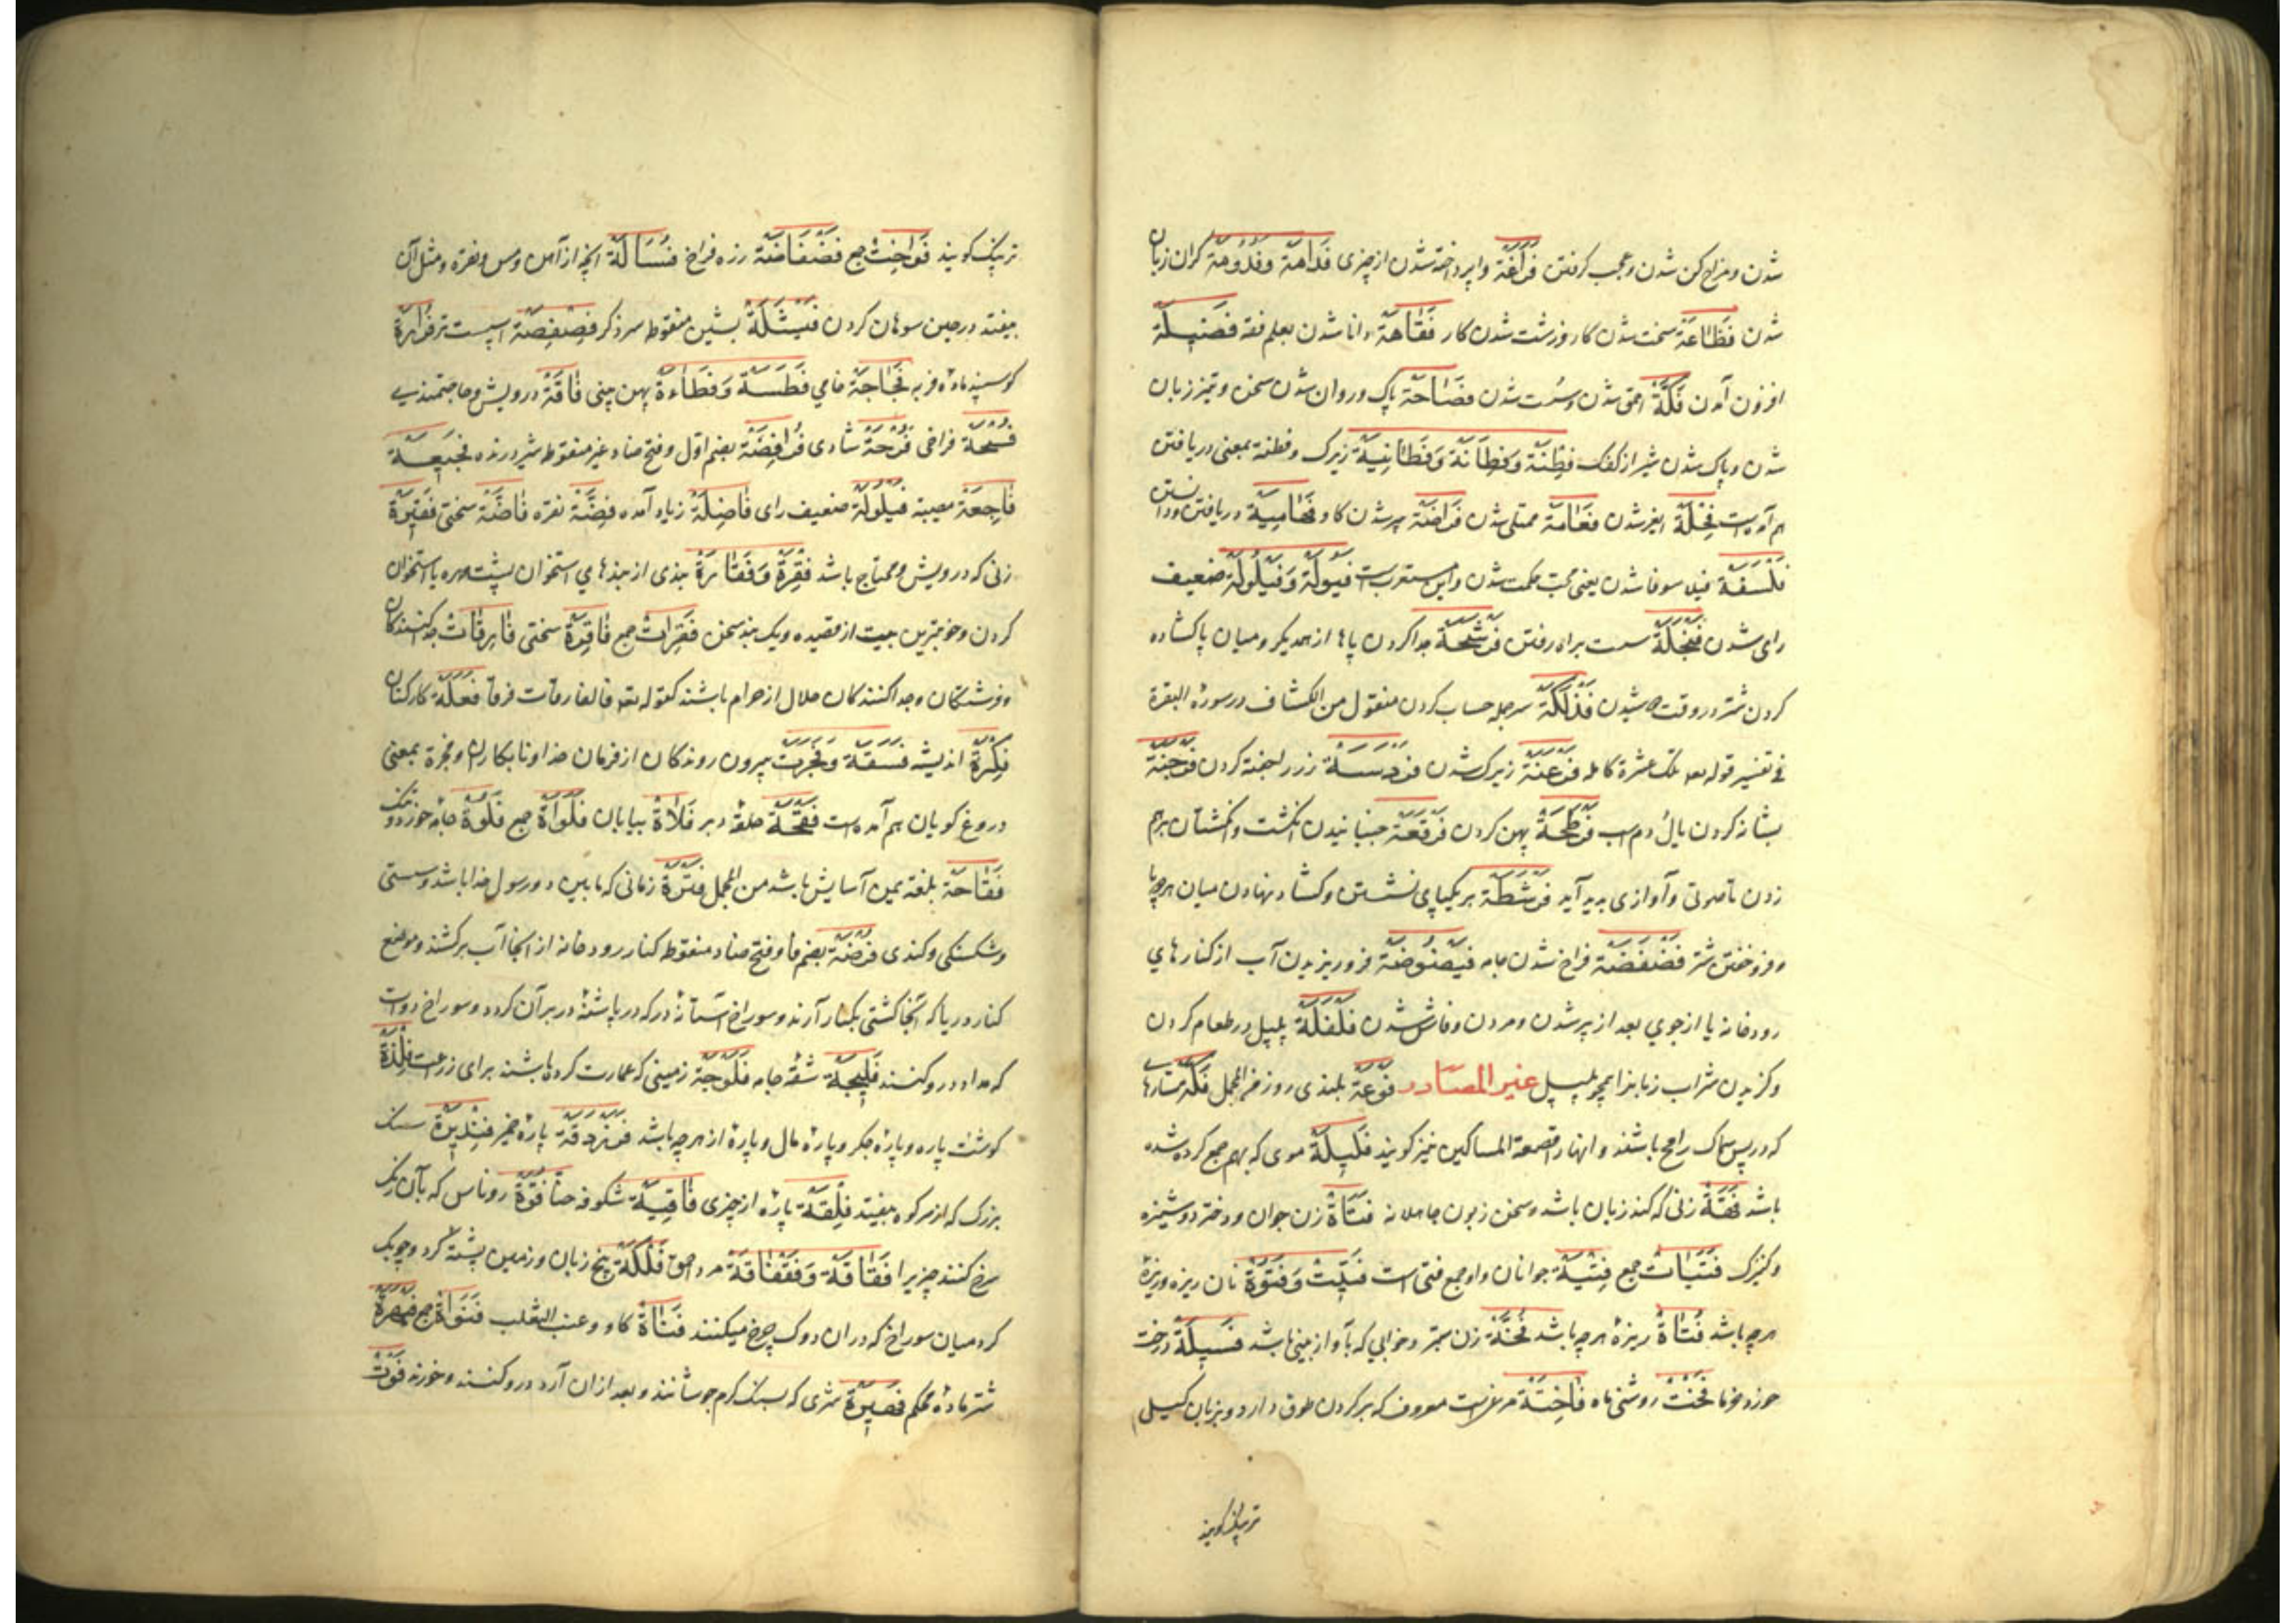 شدن و مزاح کن شدن و عجب کرفتن فَرَاغَة واپرداخته شدن از چیزی فَدَامَة وَفُدُومَة کران زبان
شدن فَظَاعَة سخت شدن کار و زشت شدن کار فَقَاهَة دانا شدن بعلم فقه فَضِیلَة
افزون آمدن فَکَّة احمق شدن و سست شدن فَصَاحَة پاک و روان شدن سخن و تیز زبان
شدن و پاک شدن شیر از کفک فِطْنَة وَفَطَانَة وَفَطَانِیَة زیرک و فطنة بمعنی دریافتن
هم آمده است فَعَامَة ممتلی شدن فَرَاضَة پیر شدن کاو دریافتن و دانستن
فَلْسَفَة فیلاسوفا شدن یعنی محب حکمت شدن و این معربست فُیُولَة وَفَیْلُولَة ضعیف
رای شدن فَنْجَلَة سست براه رفتن فَرْشَحَة جدا کردن پاها از همدیکر و میان پا کشاده
کردن شتر در وقت شیدن فَذْلَکَة سر جمله حساب کردن منقول من الکشاف در سورة البقرة
فی تفسیر قوله تعه تلک عشرة کامله فَرْعَنَة زیرک شدن کردن فَرْجَنَة
بشانه کردن یال و دم اسب فَرْطَحَة پهن کردن فَرْقَعَة جنبانیدن انکشت و انکشتان برهم
زدن تا صوتی و آوازی پدید آید فَرْشَطَة بر یکپای نشستن و کشاده نهادن میان هر دو پا
و فروخفتن شتر فَضْفَضَة فراخ شدن جامه فَیْضُوضَة فروریزیدن آب از کنارهای
رودخانه یا از جوی بعد از پر شدن و مردن و فاش شدن فَلْفَلَة پلپل در طعام کردن
و کزیدن شراب زبانرا همچو پلپل غیر المصادر فَوْعَة بلندی روز من المجمل فَکَّة ستارها
که در پس سماک رامح باشند و انهارا قصعة المساکین نیز کویند فَلِیلَة موی که بهم جمع کرده شده
باشد فَهَّة زنی که کند زبان باشد و سخن زبون جاهلانه فَتَاة زن جوان و دختر دوشیزه
و کنیزک فَتَیَات جمع فِتْیَة جوانان و او جمع فتی است فَتِیت وَفَتُوَة نان ریزه و ریزۀ
هرچه باشد فُتَاة ریزۀ هرچه باشد زن که بآواز بینی باشد فَسِیلَة درخت
خورد خرما فَخْت روشنی ماه فَاخِتَة مرغیست معروف که بر کردن طوق دارد و بزبان کیلی
ترپنک کویند
ترپنک کویند فَوَاخِت جمع فَضْفَاضَة زره فراخ فُسَالَة انچه از آهن و مس و نقره و مثل آن
بیفتد در حین سوهان کردن فَیْشَلَة بشین منقوط سر ذکر فِصْفِصَة اسپست تر
کوسپند مادۀ فربه فَجَاجَة خامی فَطَسَة وَفَطَاءة پهن بینی فَاقَة درویش و حاجتمندی
فُسْحَة فراخی فُرْحَة شادی فُرَافِصَة بضم اول و فتح صاد غیر منقوط شیر درنده فَجِیعَة
فَاجِعَة مصیبة فَیْلُولَة ضعیف رای فَاضِلَة زیاد آمده فِضَّة نقره سختی فَقِیرَة
زنی که درویش و محتاج باشد فِقْرَة وَفَقَارَة بندی از بندهای استخوان پشت مهره یا استخوان
کردن و خوبترین بیت از قصیده و یک بند سخن فِقَرَات جمع فَاقِرَة سختی فَارِقَات جدا کنندکان
و فرشتکان و جدا کنندکان حلال از حرام باشند کقوله تعه فالفارقات فرقا فَعَلَة کارکنان
فِکْرَة اندیشه فَسَقَة وَفَجَرَة بیرون روندکان از فرمان خدا و نابکاران و فجرة بمعنی
دروغ کویان هم آمده است فَقْحَة حلقۀ دبر فَلَاة بیابان فَلَوَاة جمع
فَتَاحَة بلغة یمن آسایش باشد من المجمل فَتْرَة زمانی که مابین دو رسول خدا باشد و سستی
و شکستکی و کندی فُرْضَة بضم فا و فتح ضاد منقوط کنار رودخانه از انجا آب برکشند و موضع
کنار دریا که آنجا کشتی بکنار آرند و سوراخ آستانۀ در که در پاشنۀ در بر آن کردد و سوراخ دوات
که مداد درو کنند فَلِیجَة شقۀ جامه فَلُّوجَة زمینی که عمارت کرده باشند برای زراعت فِلْذَة
کوشت پاره و پارۀ جکر و پارۀ مال و پارۀ از هرچه باشد فَرَزْدَقَة پارۀ خمیر فِنْدِیرَة سنک
بزرک که از سر کوه بیفتد فِلْقَة پارۀ از چیزی فَاغِیَة شکوفه حنا فُوَّة روناس که بآن رنک
سرخ کنند چیزیرا فَقَاقَة وَفَقْفَاقَة مرد احمق فَلْکَة بیخ زبان و زمین پشتۀ کرد و چوبک
کرد میان سوراخ که دران دوک چرخ میکنند فَنَاة کاو و عنب الثعلب فَنَوَاة جمع
شتر مادۀ محکم که بسنک کرم جوشانند و بعد ازان آرد درو کنند و خورند